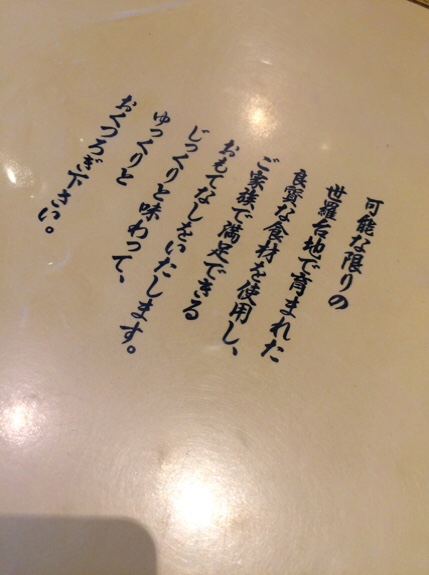 可能な限りの
世羅台地で育まれた
良質な食材を使用し、
ご家族で満足できる
おもてなしをいたします。
じっくりと味わって、
ゆっくりと
おくつろぎ下さい。